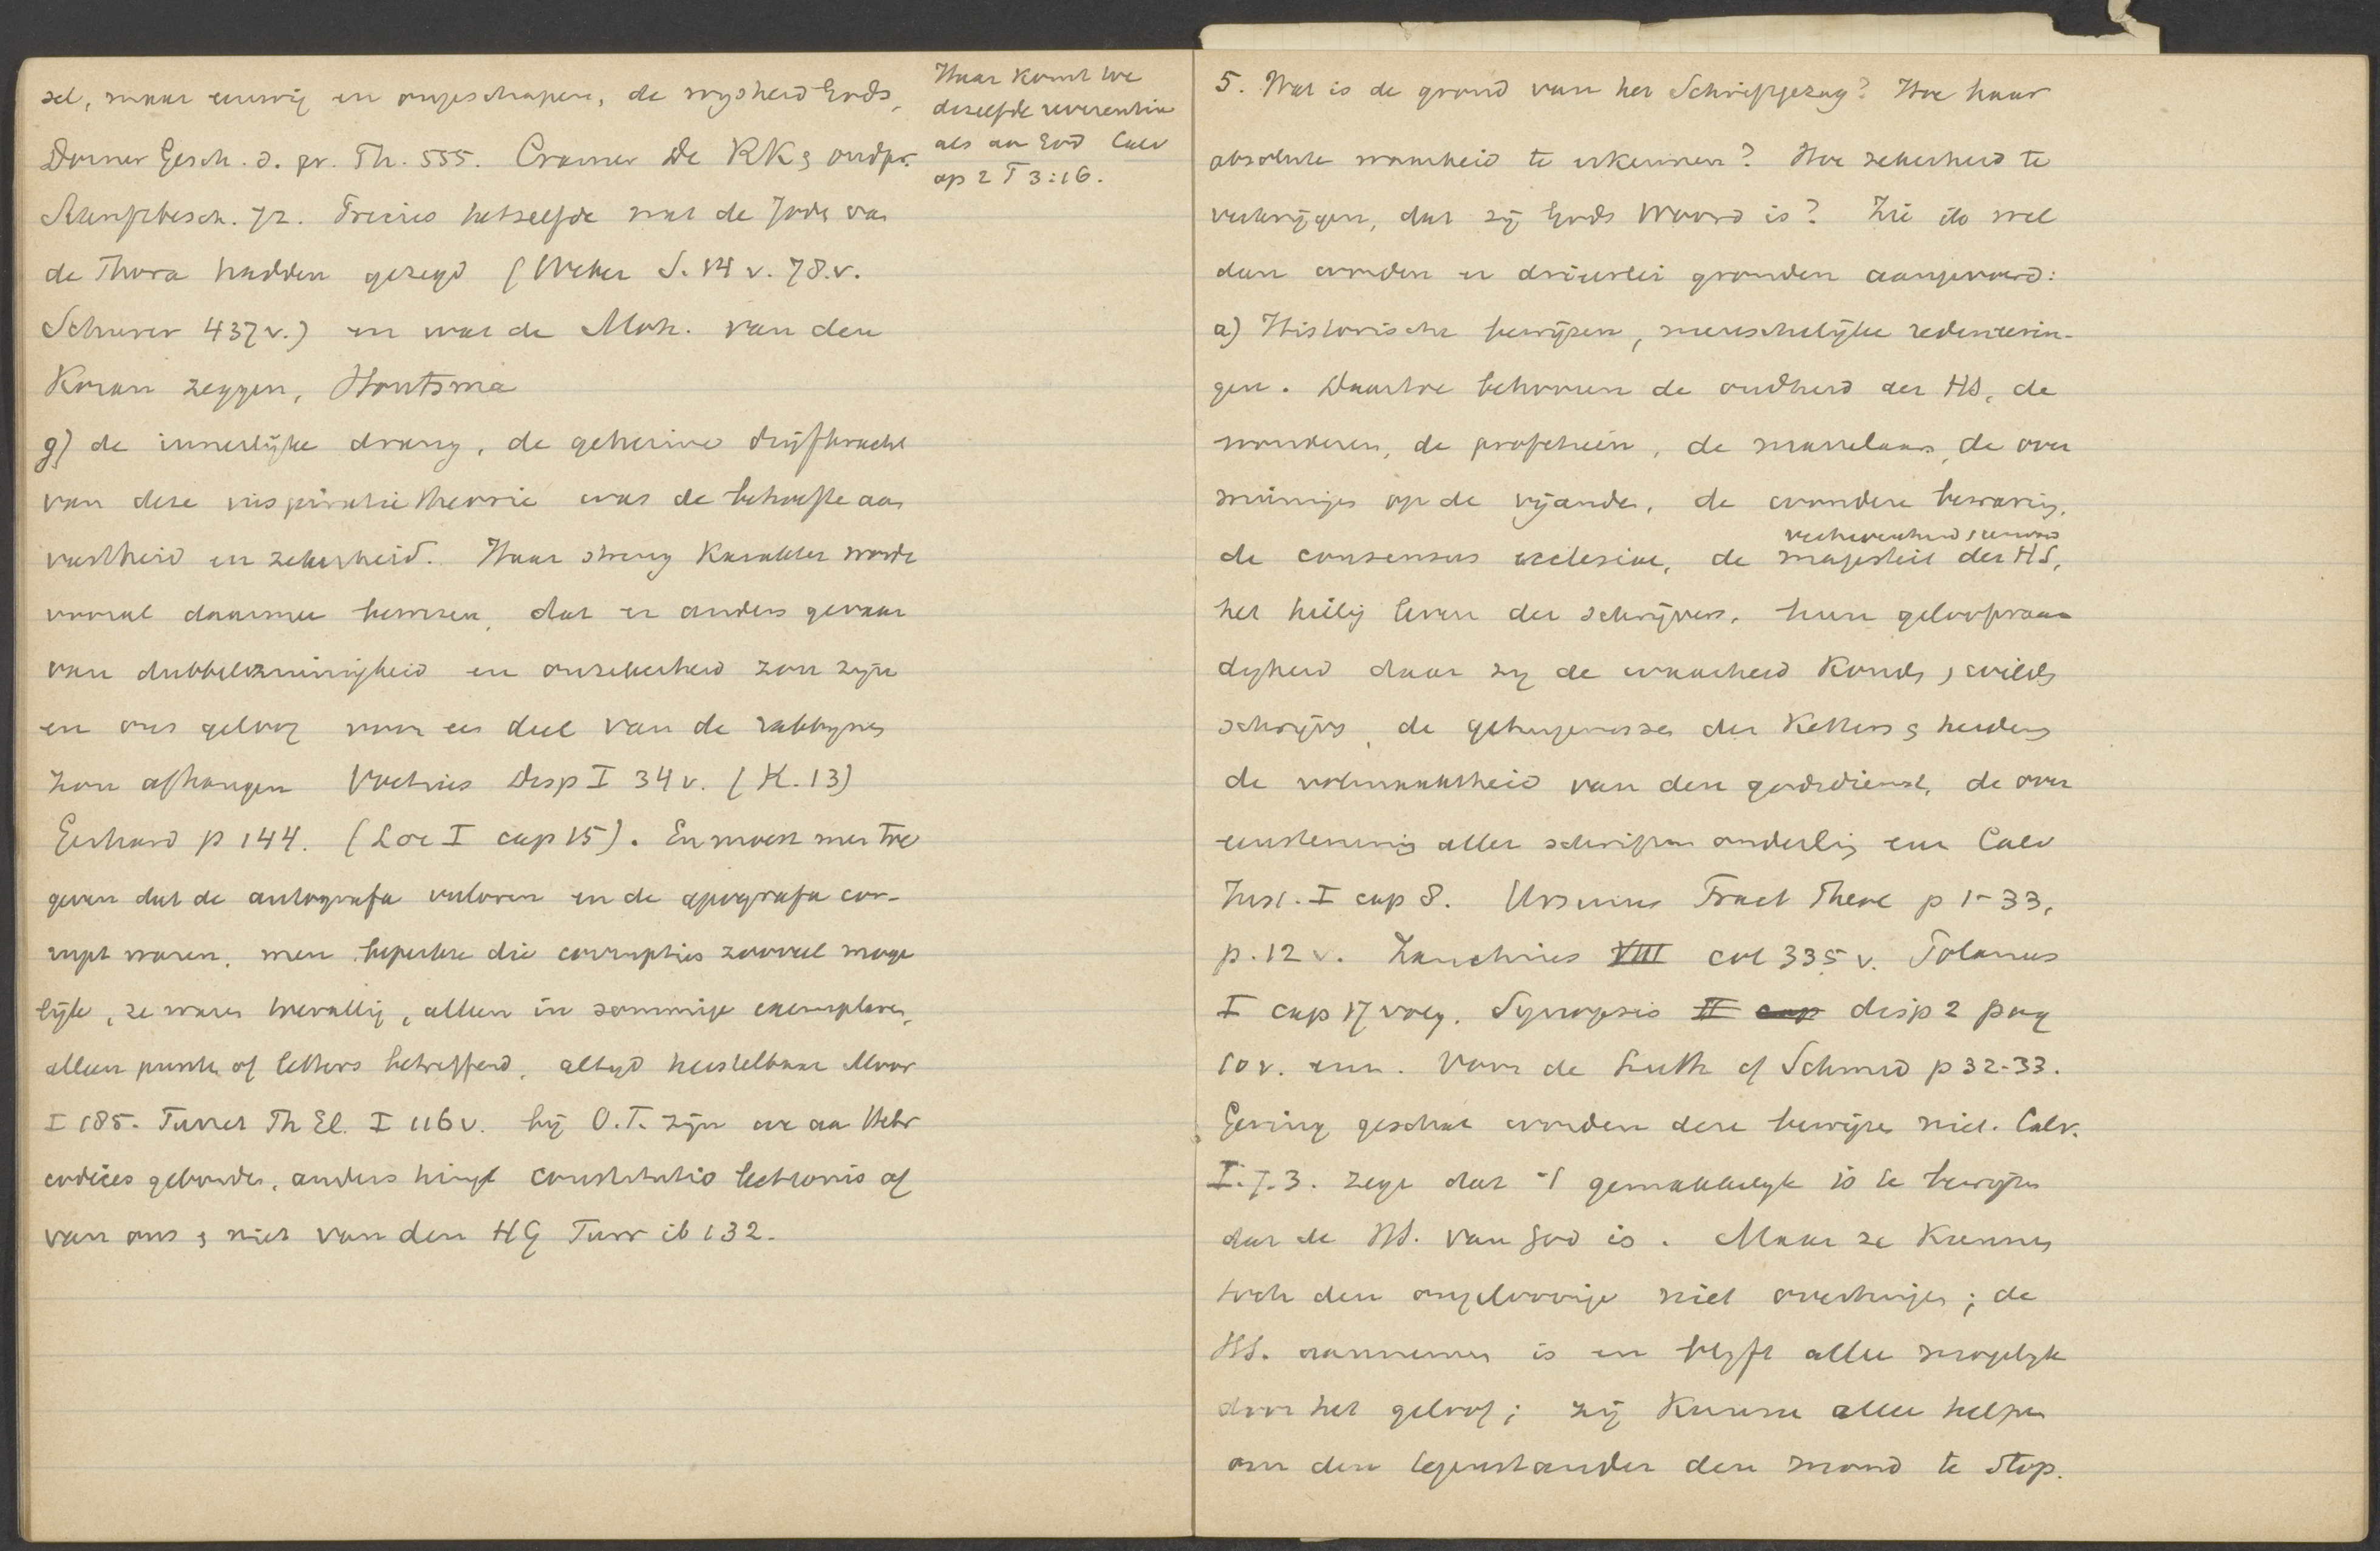 sel, maar eeuwig en ongeschapen, de wysheid Gods,
Dorner Gesch. d. pr. Th. 555. Cramer De RK & oudpr.
Schriftbesch. 72. Precies hetzelfde wat de Joden van
de Thora hadden gezegd (Weber S. 14 v. 78.v.
Schurer 437v.) en wat de Moh. van den
Koran zeggen, Houtsma
Haar komt toe
dezelfde reverentia
als aan God Calv
op 2 T 3:16.
g) de innerlijke drang, de geheime drijfkracht
van deze inspiratie theorie was de behoefte aan
vastheid en zekerheid. Haar streng karakter werd
vooral daarmee bewezen, dat er anders gevaar
van dubbelzinnigheid en onzekerheid zou zijn
en ons geloof voor een deel van de rabbynen
zou afhangen Voetius Disp I 34 v. (K. 13)
Gerhard p 144. (Loc I cap 15). En moest men toe
geven dat de autografa verloren en de apografa cor-
rupt waren, men beperkte die corrupties zooveel moge
lijk, ze waren toevallig, alleen in sommige exemplaren,
alleen punten of letters betreffend, altyd herstelbaar Moor
I 185. Turret Th El. I 116 v. bij O.T. zijn we aan Hebr
codices gebonden, anders hingt constitutio lectionis af
van ons & niet van den HG Turr ib 132.
5. Wat is de grond van het Schriftgezag? Hoe haar
absolute waarheid te erkennen? Hoe zekerheid te
verkrijgen, dat zij Gods Woord is? Zie ik wel
dan worden er drieerlei gronden aangevoerd:
a) Historische bewijzen, menschelijke redeneerin-
gen. Daartoe behooren de oudheid der HS, de
wonderen, de profetieën, de martelaars, de over
winninges op de vijanden, de wondere bewaring,
verhevenheid & eenvoud
de consensus ecclesiae, de majesteit der HS,
het heilig leven der schrijvers, hun geloofwaar
digheid daar zij de waarheid konden & wilden
schrijven, de getuigenissen der ketters & heidens
de volmaaktheid van den godsdienst, de over
eenstemming aller schriften onderling enz Calv
Inst. I cap 8. Ursinus Tract Theol p 1-33,
p. 12 v. Zanchius VIII col 335 v. Polanus
I cap 17 volg. Synopsis II cap disp 2 parg
10 v. enz. Voor de Luth cf Schmid p 32-33.
Gering geschat worden deze bewijzen niet. Calv.
I. 7. 3. zegt dat 't gemakkelyk is te bewijzen
dat de HS. van God is. Maar ze kunnen
toch den ongeloovige niet overtuigen; de
HS. aannemen is en blyft alleen mogelyk
door het geloof; zij kunnen alleen helpen
om den tegenstander den mond te stop.